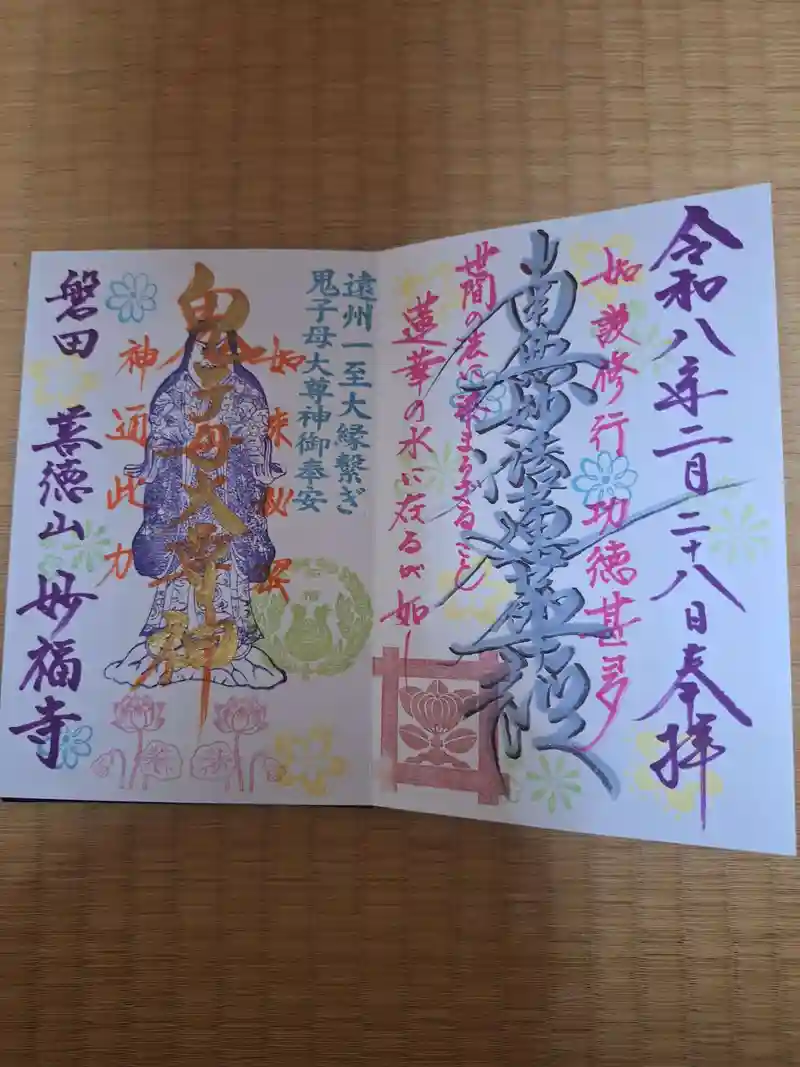 令和八年二月二十八日奉拝
如説修行功徳甚多
南無妙法蓮華経
世間の法に染まらざること
蓮華の水に在るが如し
遠州一至大縁繋ぎ
鬼子母大尊神御奉安
如来秘密
鬼子母大尊神
神通此力
磐田 善徳山 妙福寺